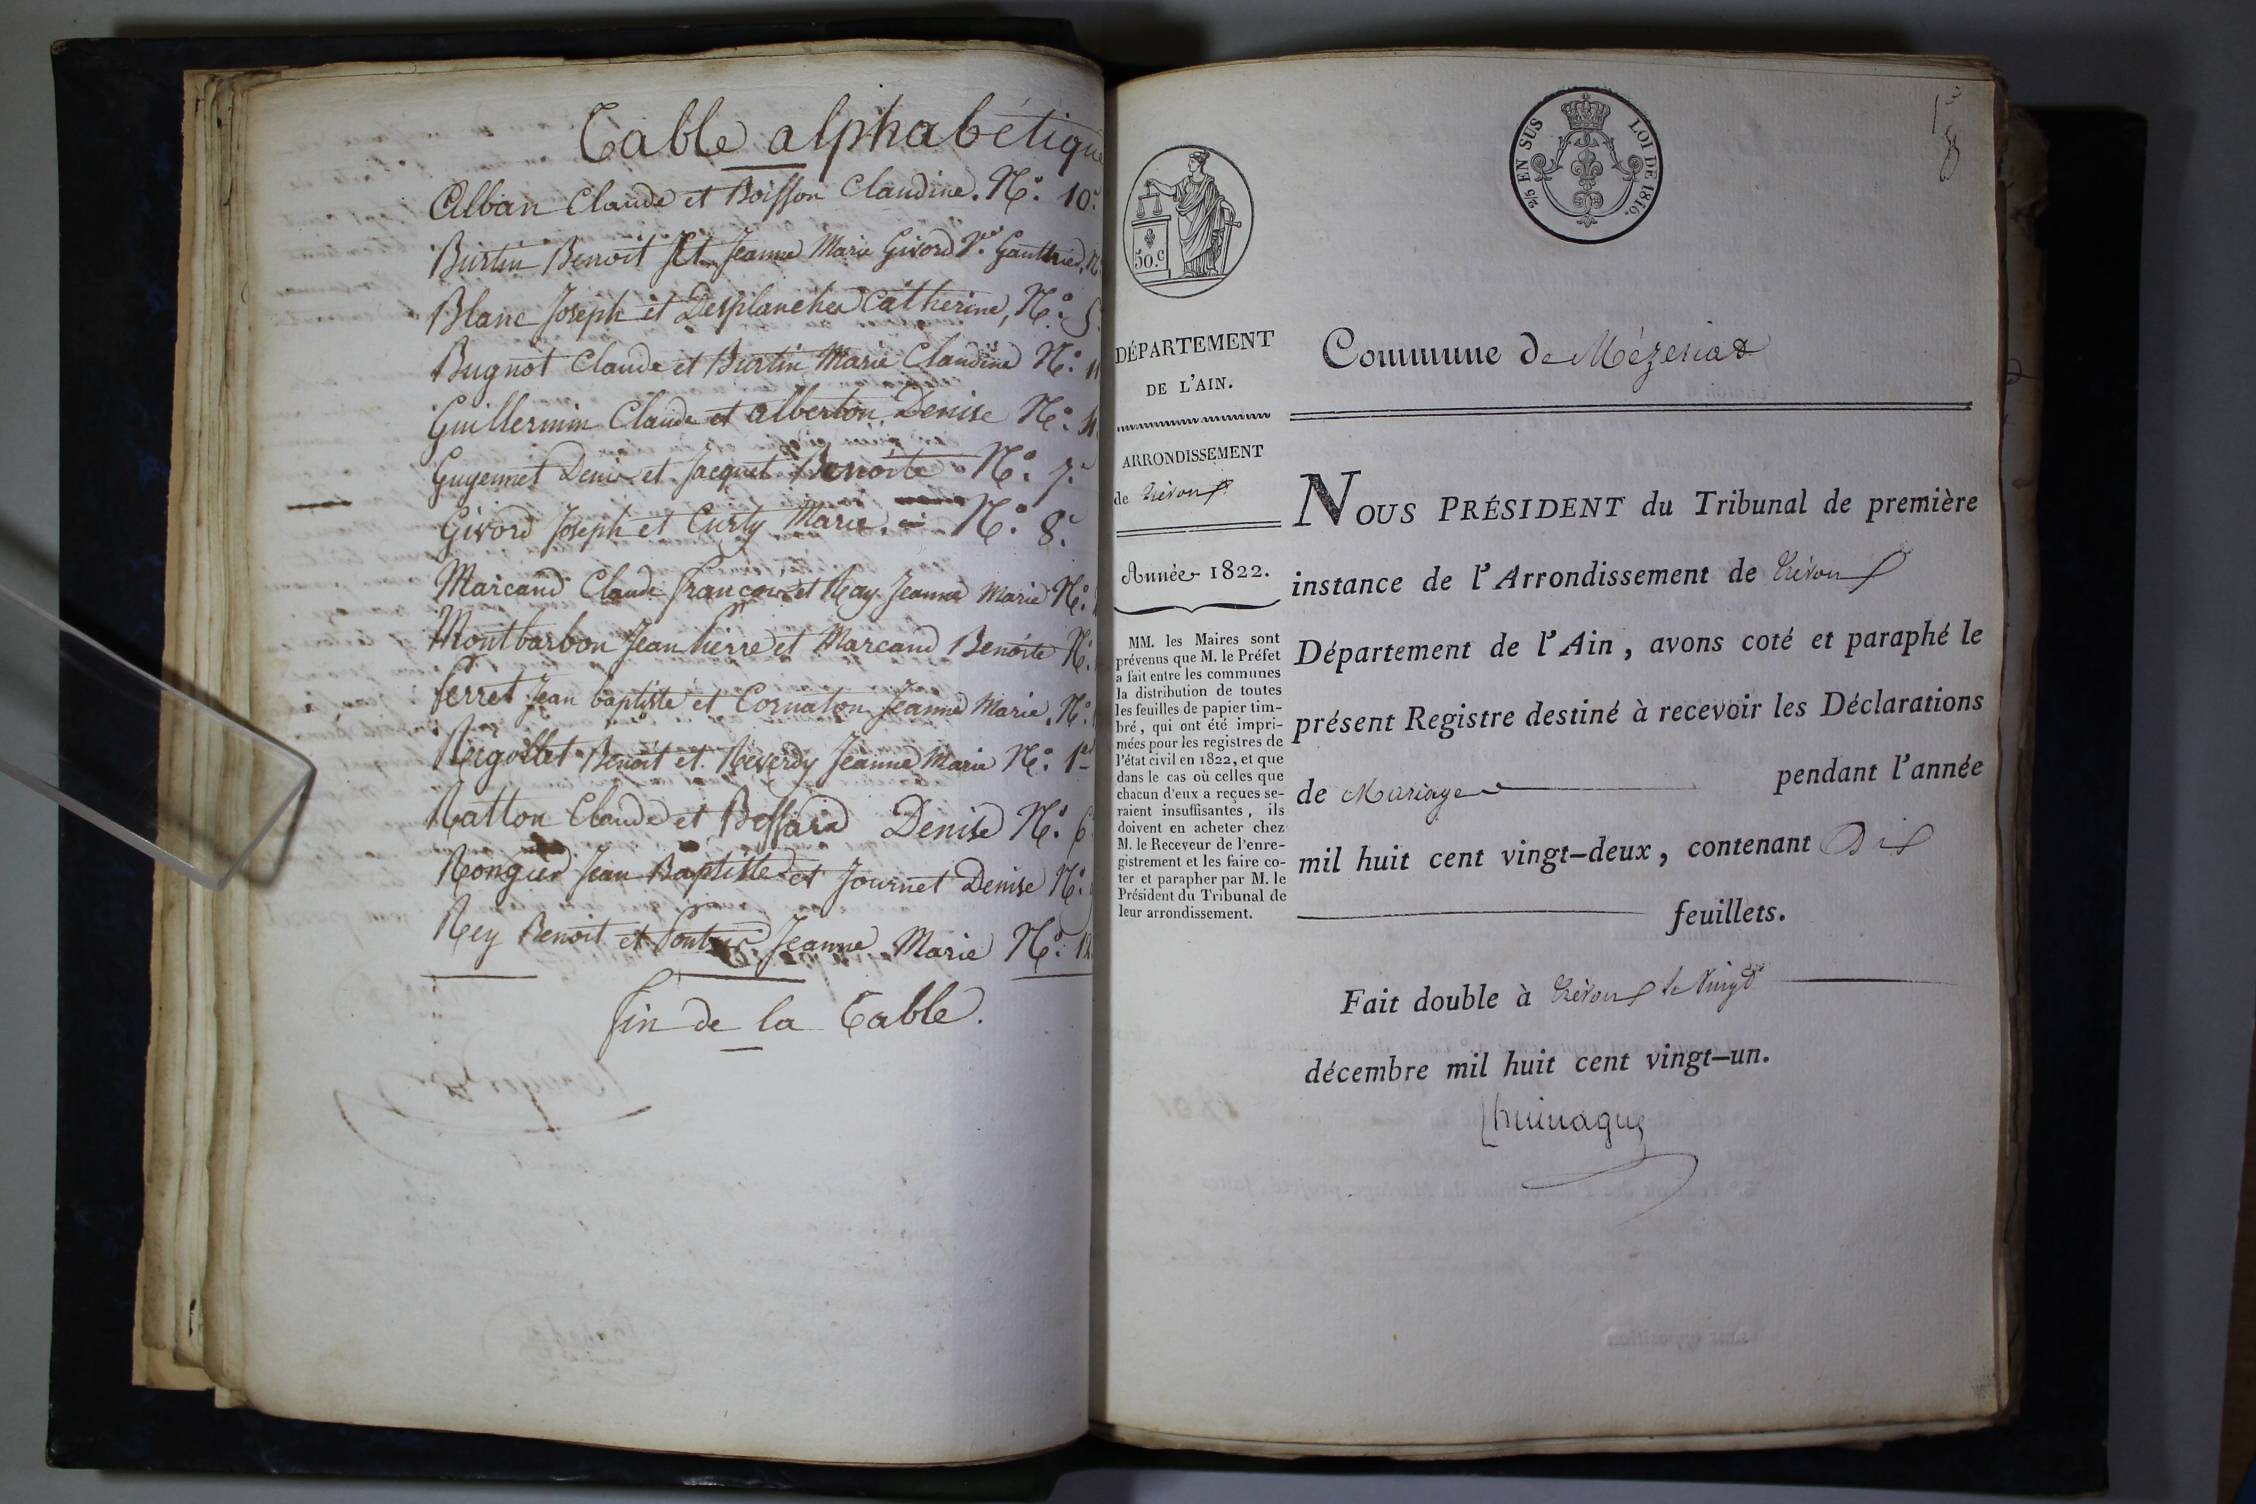 Table alphabétique
Alban Claude et Boisson Claudine. N.o 10.
Burtin Benoit et Jeanne Marie Givord V.ve Gauthier, N.
Blanc Joseph et Desplanches Catherine, N.o 5
Bugnot Claude et Burtin Marie Claudine N.o 11
Guillermin Claude et alberton Denise N.o 4
Guyennet Denis et Jacquet Benoite N.o 7.
Givord Joseph et Curty Marie. N.o 8.
Marcand Claude françois et Ray Jeanne Marie N.o
Montbarbon Jean Pierre et Marcand Benoite N.o
Perret Jean baptiste et Cornaton Jeanne Marie, N.o
Rigollet Benoit et Reverdy Jeanne Marie N.o 1er
Ratton Claude et Bossard Denise N.o 6
Rongier Jean Baptiste et Journet Denise N.o
Rey Benoit et Jeanne Marie N.o 12
fin de la Table.
2/5 EN SUS LOI DE 1816.
50.c
DÉPARTEMENT
DE L'AIN.
ARRONDISSEMENT
de Trévoux
Année 1822.
MM. les Maires sont
prévenus que M. le Préfet
a fait entre les communes
la distribution de toutes
les feuilles de papier tim-
bré, qui ont été impri-
mées pour les registres de
l'état civil en 1822, et que
dans le cas où celles que
chacun d'eux a reçues se-
raient insuffisantes, ils
doivent en acheter chez
M. le Receveur de l'enre-
gistrement et les faire co-
ter et parapher par M. le
Président du Tribunal de
leur arrondissement.
Commune de Mézeriat
NOUS PRÉSIDENT du Tribunal de première
instance de l'Arrondissement de Trévoux
Département de l'Ain, avons coté et paraphé le
présent Registre destiné à recevoir les Déclarations
de Mariage pendant l'année
mil huit cent vingt-deux, contenant Dix
feuillets.
Fait double à Trévoux le Vingt
décembre mil huit cent vingt-un.